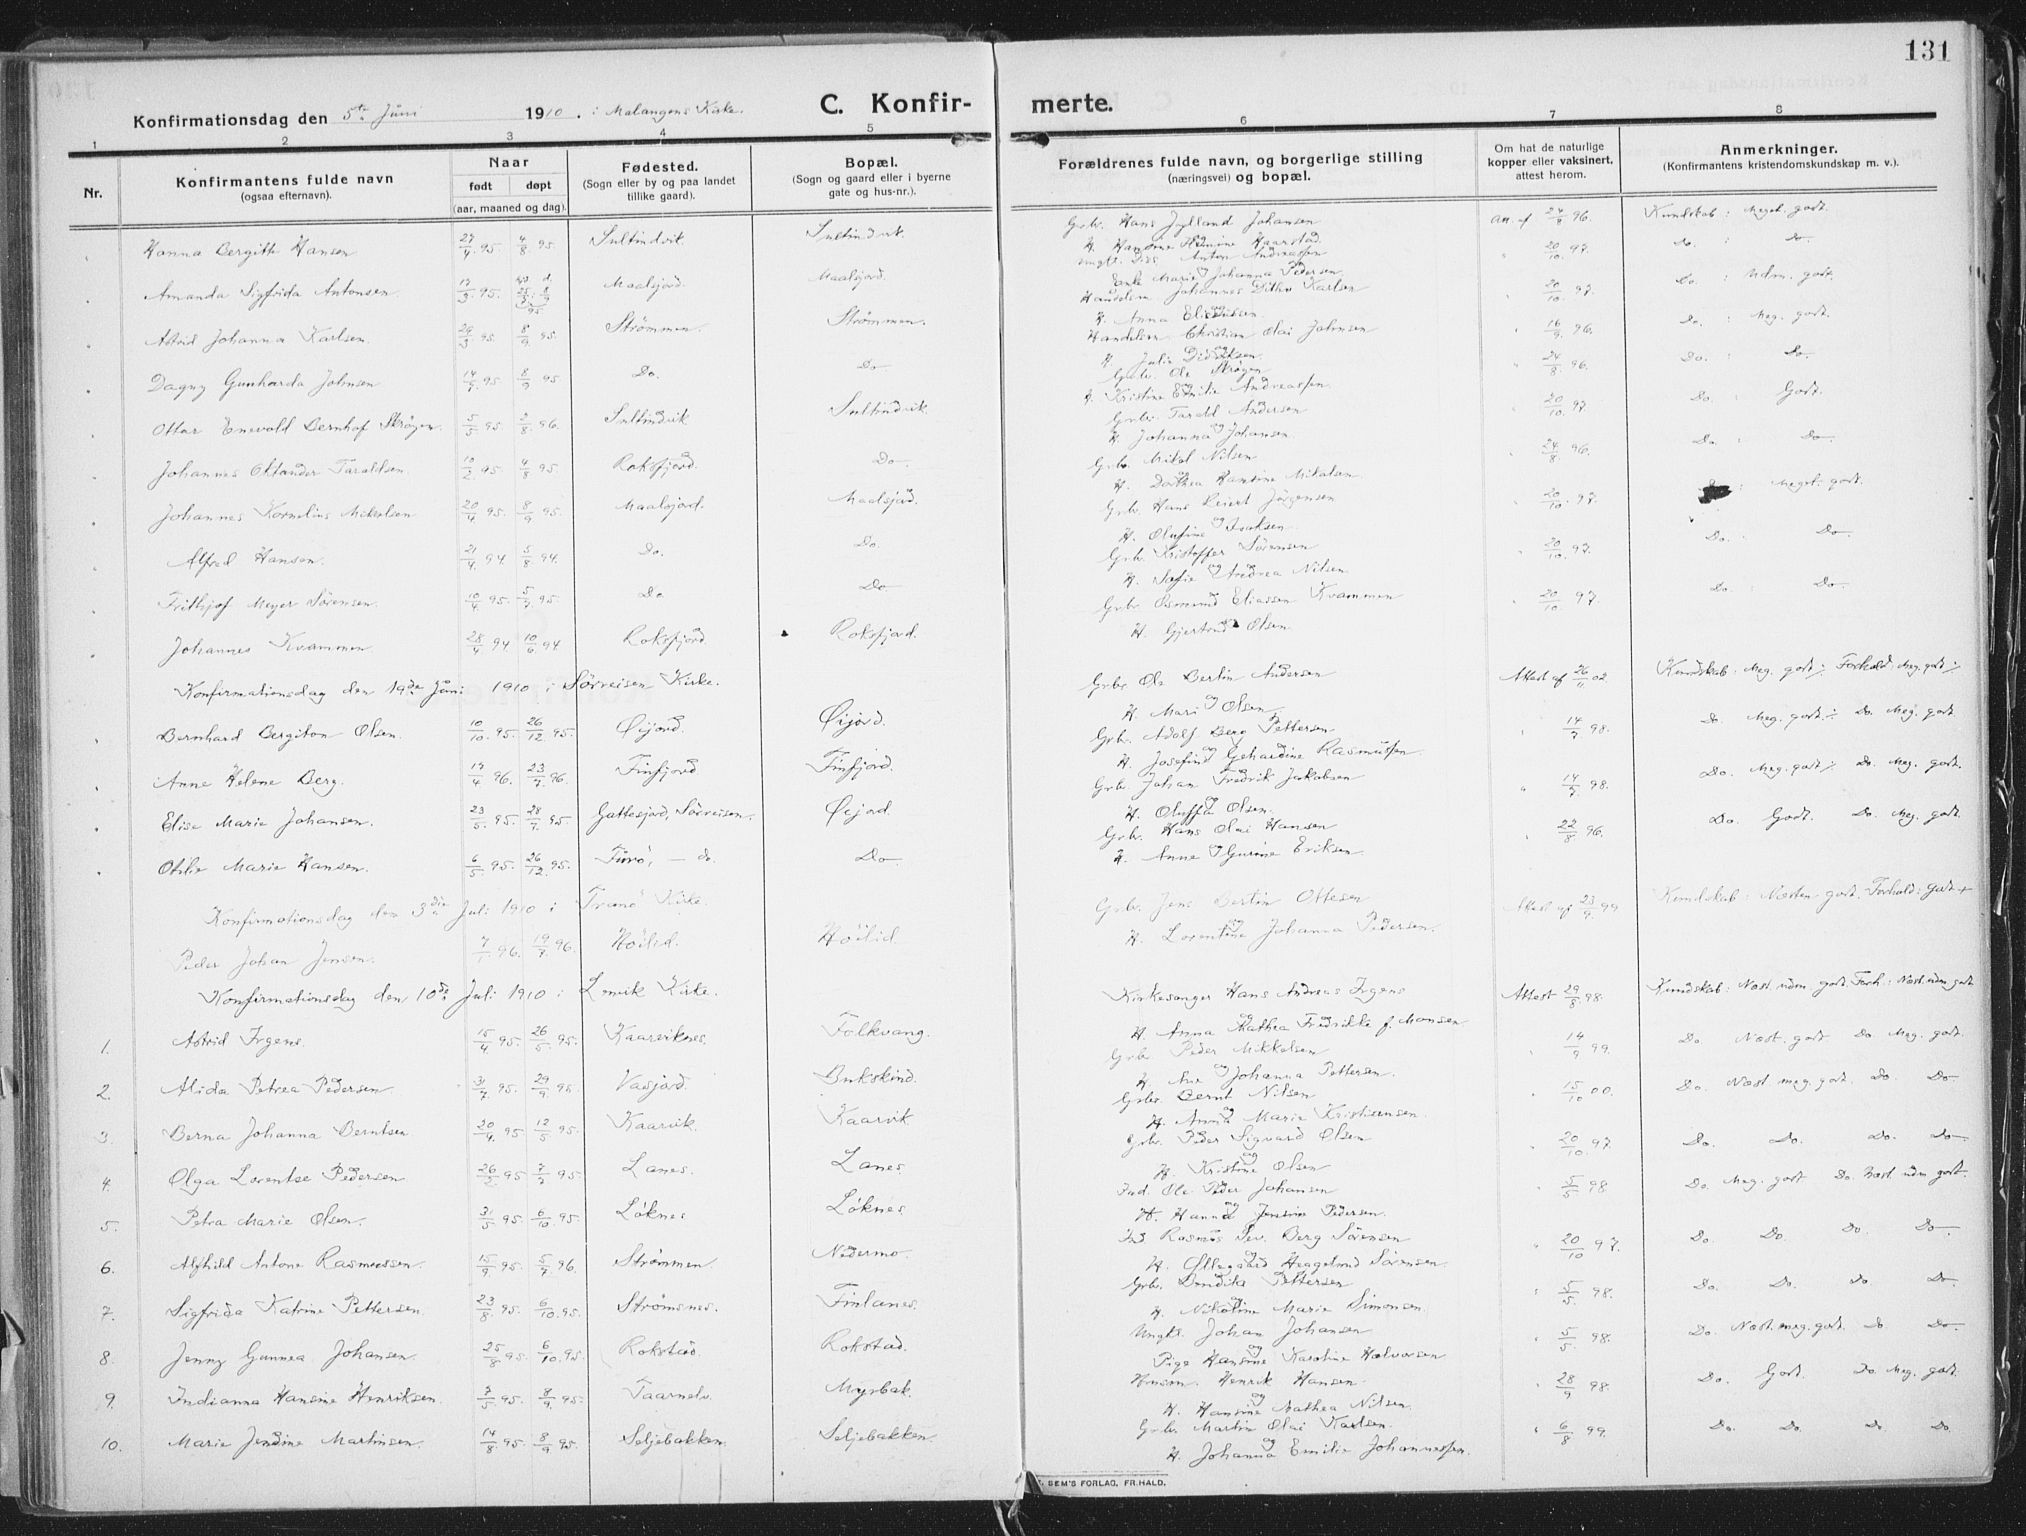 131
Konfirmationsdag den 5te Juni 1910. i Malangens Kirke.
C. Konfirmerte.
1 2 3 4 5 6 7 8
Nr.
Konfirmantens fulde navn
(ogsaa efternavn).
Naar
født døpt
(aar, maaned og dag).
Fødested.
(Sogn eller by og paa landet
tillike gaard).
Bopæl.
(Sogn og gaard eller i byerne
gate og hus-nr.).
Forældrenes fulde navn, og borgerlige stilling
(næringsvei) og bopæl.
Om hat de naturlige
kopper eller vaksinert,
attest herom.
Anmerkninger.
(Konfirmantens kristendomskundskap m. v.).
Hanna Bergitte Hansen 4/8 95. Sultindvik. Sultindvik. Grbr. Hans Jylland Johansen Kundskab: Meget godt.
Amanda Sigfrida Antonsen. 17/3 95. Maalsjord. Maalsjord. Anton Andreassen 20/10 97. Do. : Do.
Astrid Johanna Karlsen. 29/3 95 8/9 95. Strømmen. Strømmen. Handelsm. Johannes Ditlev Karlsen 20/10 97. Do. : Udm. godt.
H. Anna Eliassen.
Dagny Gunharda Johnsen 14/7 95 8/9 95 Do. Do Handelsm. Christian Olai Johnsen 16/9 96. Do. : Meg. godt.
H. Julie Didriksen.
Ottar Enevold Bernhof Skrøgen. 5/5 95 2/8 96. Sultindvik Sultindvik. Grbr. Ole Skrøgen 24/8 96. Do. : Do.
H. Kristine Emilie Andreassen.
Johannes Oktander Taraldsen. 10/2 95 4/8 95. Roksfjord. Do Grbr. Tarald Andersen 20/10 97. Do : Godt.
H. Johanna Johansen.
Johannes Kornelius Mikalsen 20/4 95. 8/9 95. Maalsjord. Maalsjord. Grbr. Mikal Nilsen 24/8 96. Do : Do
H. Dorthea Hansine Mikalsen
Alfred Hansen. 21/4 94 5/8 94. Do. Do. Grbr. Hans Jørgensen 20/10 97. : Meget godt.
H. Olufine Isaksen.
Frithjof Meyer Sørensen. 10/4 95. 5/7 95. Do Do Grbr. Kristoffer Sørensen 20/10 97. Do. : Do
H. Sofie Andrea Nilsen
Johannes Kvammen 28/4 94 10/6 94 Roksfjord Roksfjord. Grbr. Osmund Eliassen Kvammen 20/10 97. Do : Do
H. Gjertrud Olsen
Konfirmationsdag den 19de Juni 1910 i Sørreisen Kirke.
Bernhard Bergiton Olsen. 10/10 95. 26/12 95. Øijord. Øijord. Grbr Ole Bertin Andersen Attest af 26/11 02. Kundskab: Meg. godt Forhold: Meg. godt
H. Mari Olsen
Anne Helene Berg. 17/4 96. 23/7 96. Finfjord Finfjord. Grbr. Adolf Berg Pettersen 14/7 98. Do Meg. godt Do. Meg. godt
H. Josefine Rasmussen.
Elise Marie Johansen. 23/5 95. 28/7 95. Gottesjord, Sørreisen. Øijord Grbr. Johan Fredrik Jakobsen 14/7 98. Do. Meg. godt Do. Meg. godt.
H. Oluffa Olsen.
Otilie Marie Hansen. 6/5 95. 26/12 95. Furø, — do. Do Grbr. Hans Olai Hansen 22/8 96. Do Godt. Do. Meg. godt.
H. Anne Gurine Eriksen.
Konfirmationsdag den 3die Juli 1910 i Tranø Kirke.
Peder Johan Jensen. 7/1 96. 19/7 96. Høilid. Høilid. Grbr. Jens Bertin Ottesen Attest af 23/9 99 Kundskab: Næsten godt. Forhold: Godt +
H. Lorentine Johanna Pedersen.
Konfirmationsdag den 10de Juli 1910 i Lenvik Kirke.
1. Astrid Irgens. 15/4 95. 26/5 95. Kaarviknes. Folkvang. Kirkesanger Hans Andreas Irgens Attest 29/8 98. Kundskab: Næst. udm. godt. Forh: Næst. udm godt
H. Anna Mathea Fredrikke f. Monsen
2. Alida Petrea Pedersen 31/7 95. 29/9 95. Vasjord. Bukskind. Grbr. Peder Mikkelsen 14/9 99. Do. Næst. godt Do Meg. godt.
H. Ane Johanna Pettersen.
3. Berna Johanna Berntsen 20/4 95 12/5 95. Kaarvik. Kaarvik Grbr. Bernt Nilsen 15/10 00. Do. Næst meg. godt. Do Do
H. Anna Marie Kristiansen.
4. Olga Lorentse Pedersen 95 7/7 95 Lanes. Lanes Grbr. Peder Sigvard Olsen 20/10 97 Do Do. Do. Do
H. Kristine Olsen
5. Petra Marie Olsen. 31/5 95 6/10 95. Løknes Løknes Ind. Ole Peder Johansen 5/5 98 Do Meg. godt Do. Næst udm godt.
H. Hanna Jensine Pedersen.
6. Alfhild Antone Rasmussen. 15/9 95. 5/7 96. Strømmen Nedermo. Ind Rasmus Sev. Berg Sørensen 20/10 97. Do. Do. Do Do
H. Ollegaard Haagelund Sørensen.
7. Sigfrida Katrine Pettersen. 23/8 95. 6/10 95. Strømsnes. Finlanes. Grbr. Bendikt Pettersen 5/5 98. Do Do. Do Do
H. Nikoline Marie Simonsen.
8. Jenny Gunnea Johansen. 25/8 95. 6/10 95. Rokstad. Rokstad. Ungk. Johan Johansen 5/5 98. Do. Næst. meg. godt. Do Do
Pige Hansine Karoline Halvorsen
9. Indianna Hansine Henriksen. 7/5 95. 8/9 95. Taarnelv. Myrbak. Husm. Henrik Hansen 28/9 98. Do. Godt. Do Meg. godt.
H. Hansine Mathea Nilsen.
10. Marie Jensine Martinsen. 14/8 95. 8/9 95. Seljebakken. Seljebakken. Grbr Martin Olai Karlsen. 6/8 99. Do Do Do Do
H. Johanna Emilie Johannessen.
SEM'S FORLAG, FR.HALD.